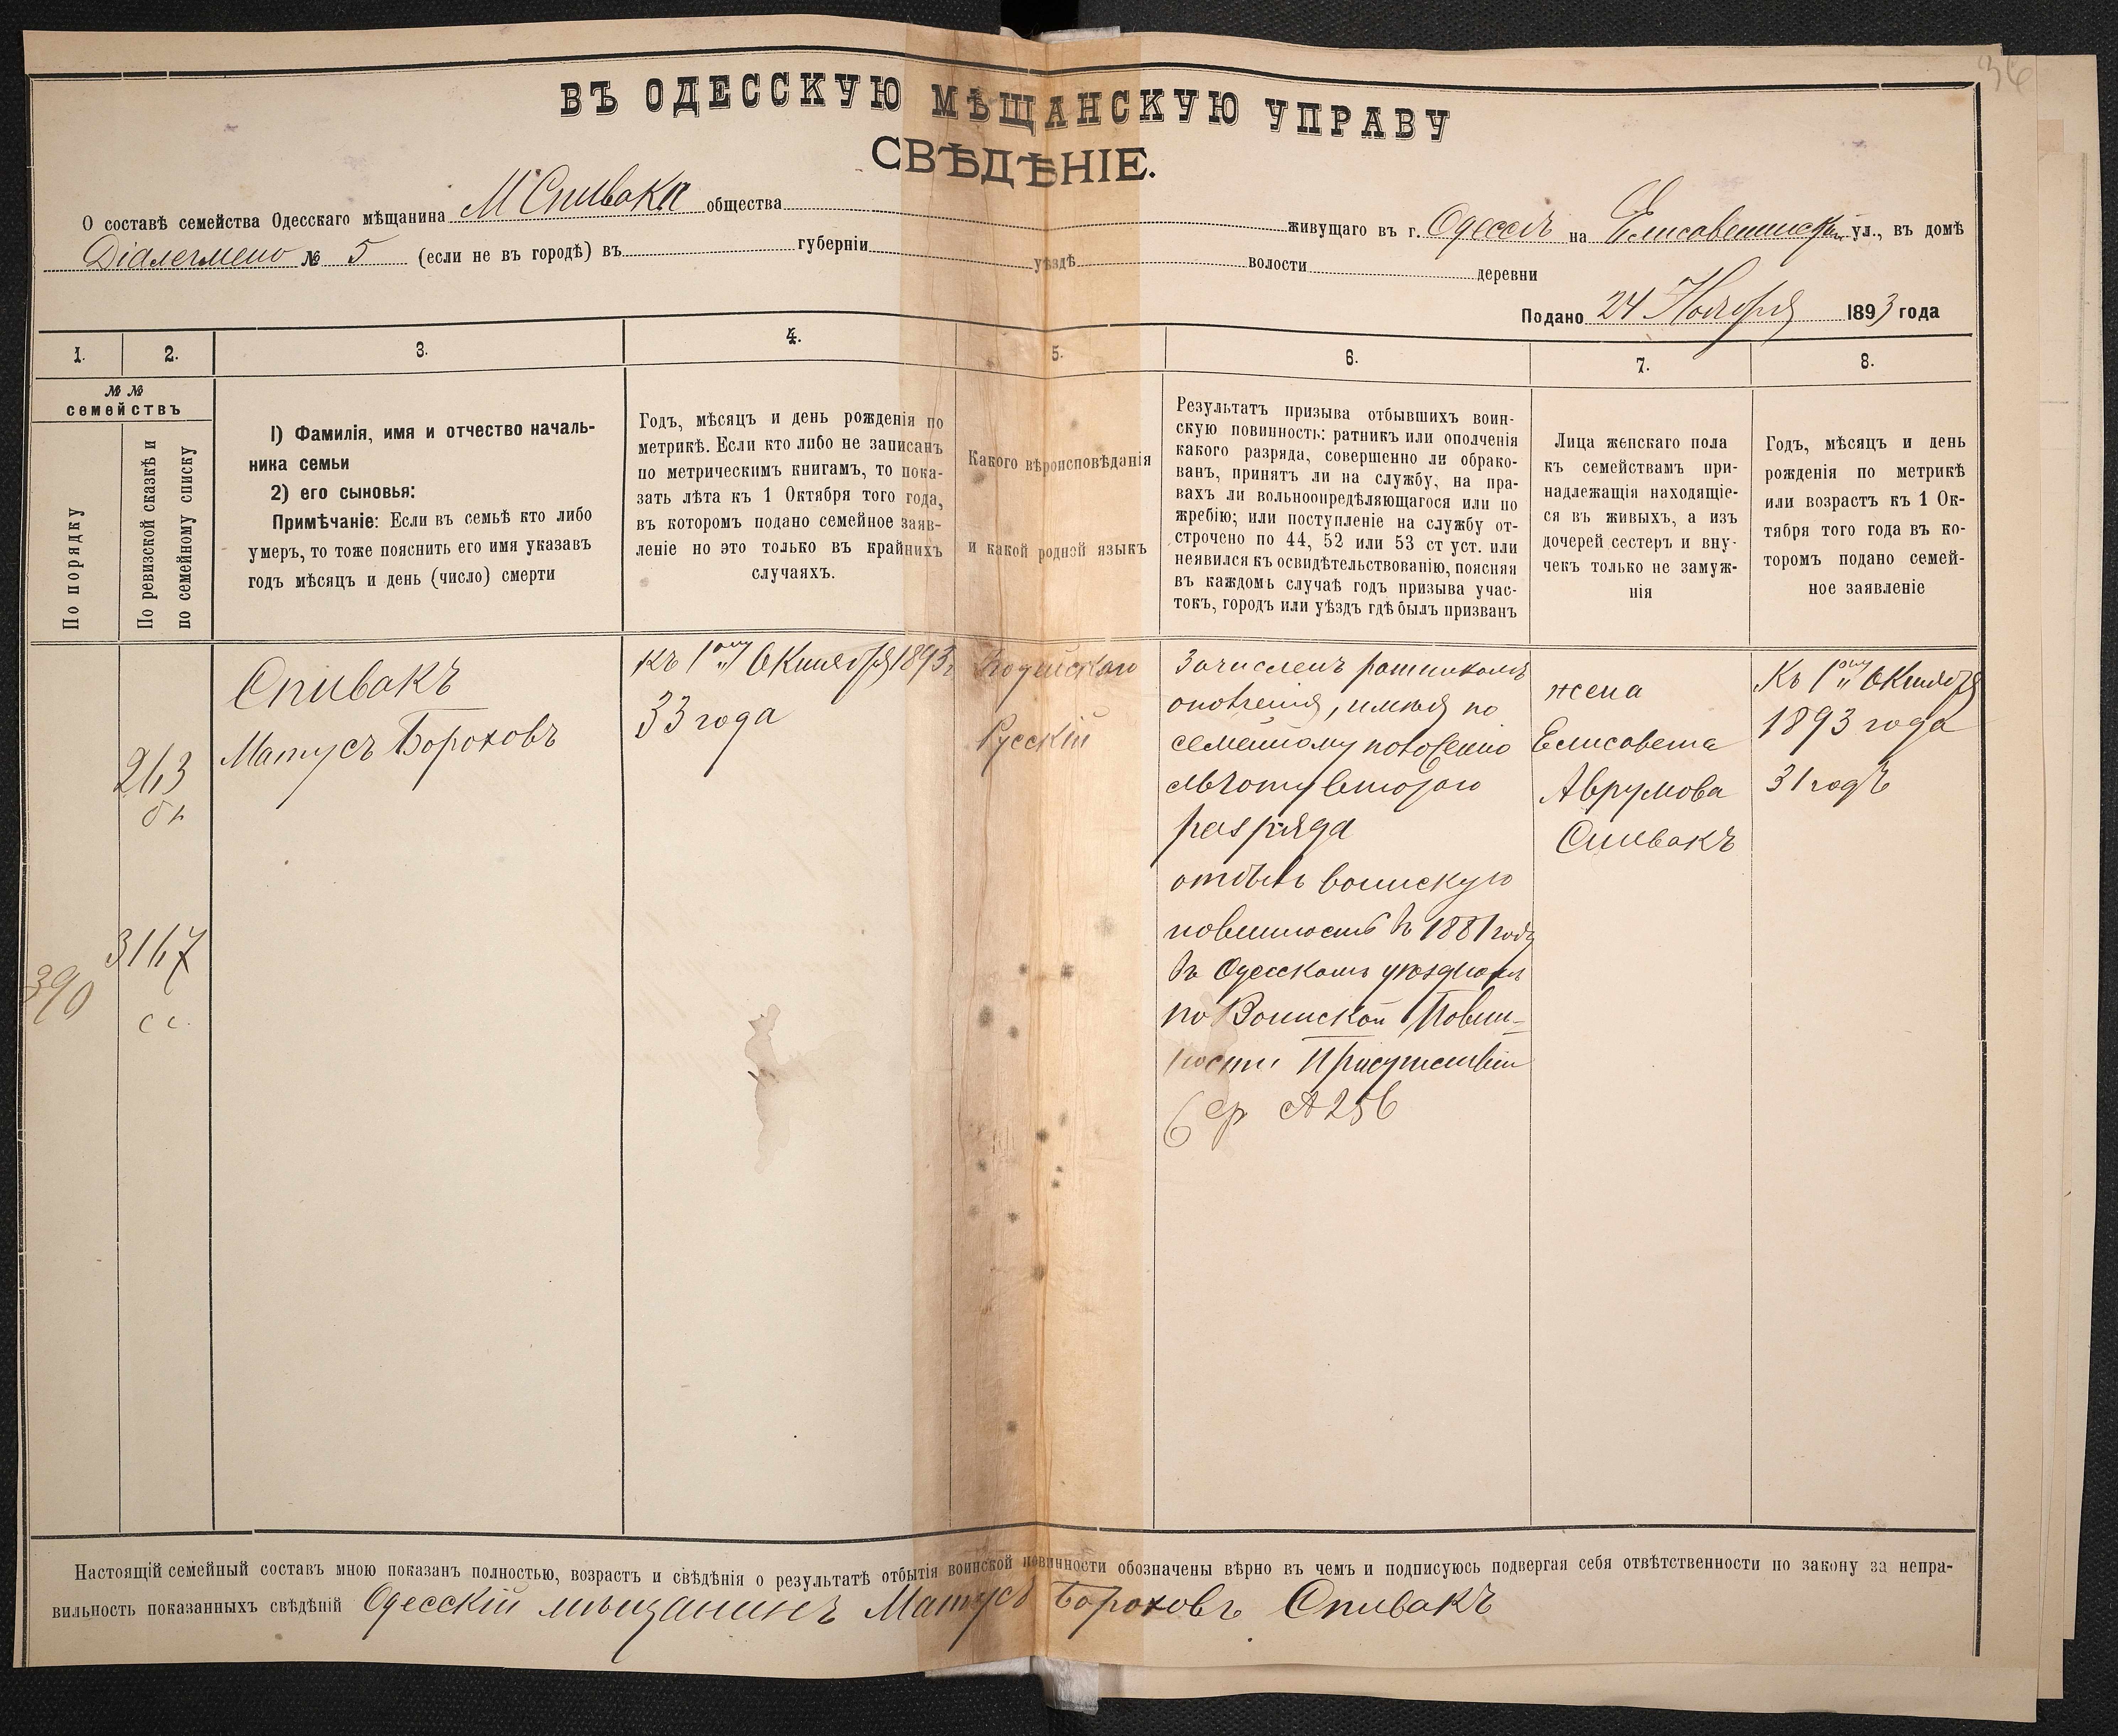 36
ВЪ ОДЕССКУЮ МѢЩАНСКУЮ УПРАВУ
СВѢДѢНІЕ.
О составѣ семейства Одесскаго мѣщанина М Спивака общества живущаго въ г. Одессѣ на Елисаветинской ул., въ домѣ
№ 5 (если не въ городѣ) въ губерніи уѣздѣ волости деревни
Подано 24 Ноября 1893 года
1. 2. 3. 4. 5. 6. 7. 8.
№ №
семействъ
По порядку
По ревизской сказкѣ и
по семейному списку
1) Фамилія, имя и отчество началь-
ника семьи
2) его сыновья:
Примѣчаніе: Если въ семьѣ кто либо
умеръ, то тоже пояснить его имя указавъ
годъ мѣсяцъ и день (число) смерти
Годъ, мѣсяцъ и день рожденія по
метрикѣ. Если кто либо не записанъ
по метрическимъ книгамъ, то пока-
зать лѣта къ 1 Октября того года,
въ котором подано семейное заяв-
леніе но это только въ крайнихъ
случаяхъ.
Какого вѣроисповѣданія
и какой родной языкъ
Результатъ призыва отбывшихъ воин-
скую повинность: ратникъ или ополченія
какого разряда, совершенно ли обрако-
ванъ, принятъ ли на службу, на пра-
вахъ ли вольноопредѣляющагося или по
жребію; или поступленіе на службу от-
строчено по 44, 52 или 53 ст уст. или
неявился къ освидѣтельствованію, поясняя
въ каждомъ случаѣ годъ призыва учас-
токъ, городъ или уѣздъ гдѣ былъ призванъ
Лица женскаго пола
къ семействамъ при-
надлежащія находящіе-
ся въ живыхъ, а изъ
дочерей сестеръ и вну-
чекъ только не замуж-
нія
Годъ, мѣсяцъ и день
рожденія по метрикѣ
или возрастъ къ 1 Ок-
тября того года въ ко-
торомъ подано семей-
ное заявленіе
390
263
3167
с с.
Спивакъ
Матусъ Бороховъ
Къ 1ому Октября 1893 г
33 года
Іудейскаго
Русскій
Зачисленъ ратникомъ
ополченія, имѣя по
семейному положенію
льготу втораго
разряда
отбылъ воинскую
повинность въ 1881 году
въ Одесскомъ уѣздномъ
по Воинской Повин-
ности Присутствіи
жена
Елисавета
Аврумова
Спивакъ
Къ 1ому Октября
1893 года
31 годъ
Настоящій семейный составъ мною показанъ полностью, возрастъ и свѣдѣнія о результатѣ отбытія воинской повинности обозначены вѣрно въ чемъ и подписуюсь подвергая себя отвѣтственности по закону за непра-
вильность показанныхъ свѣдѣній Одесскій мѣщанинъ Матусъ Бороховъ Спивакъ